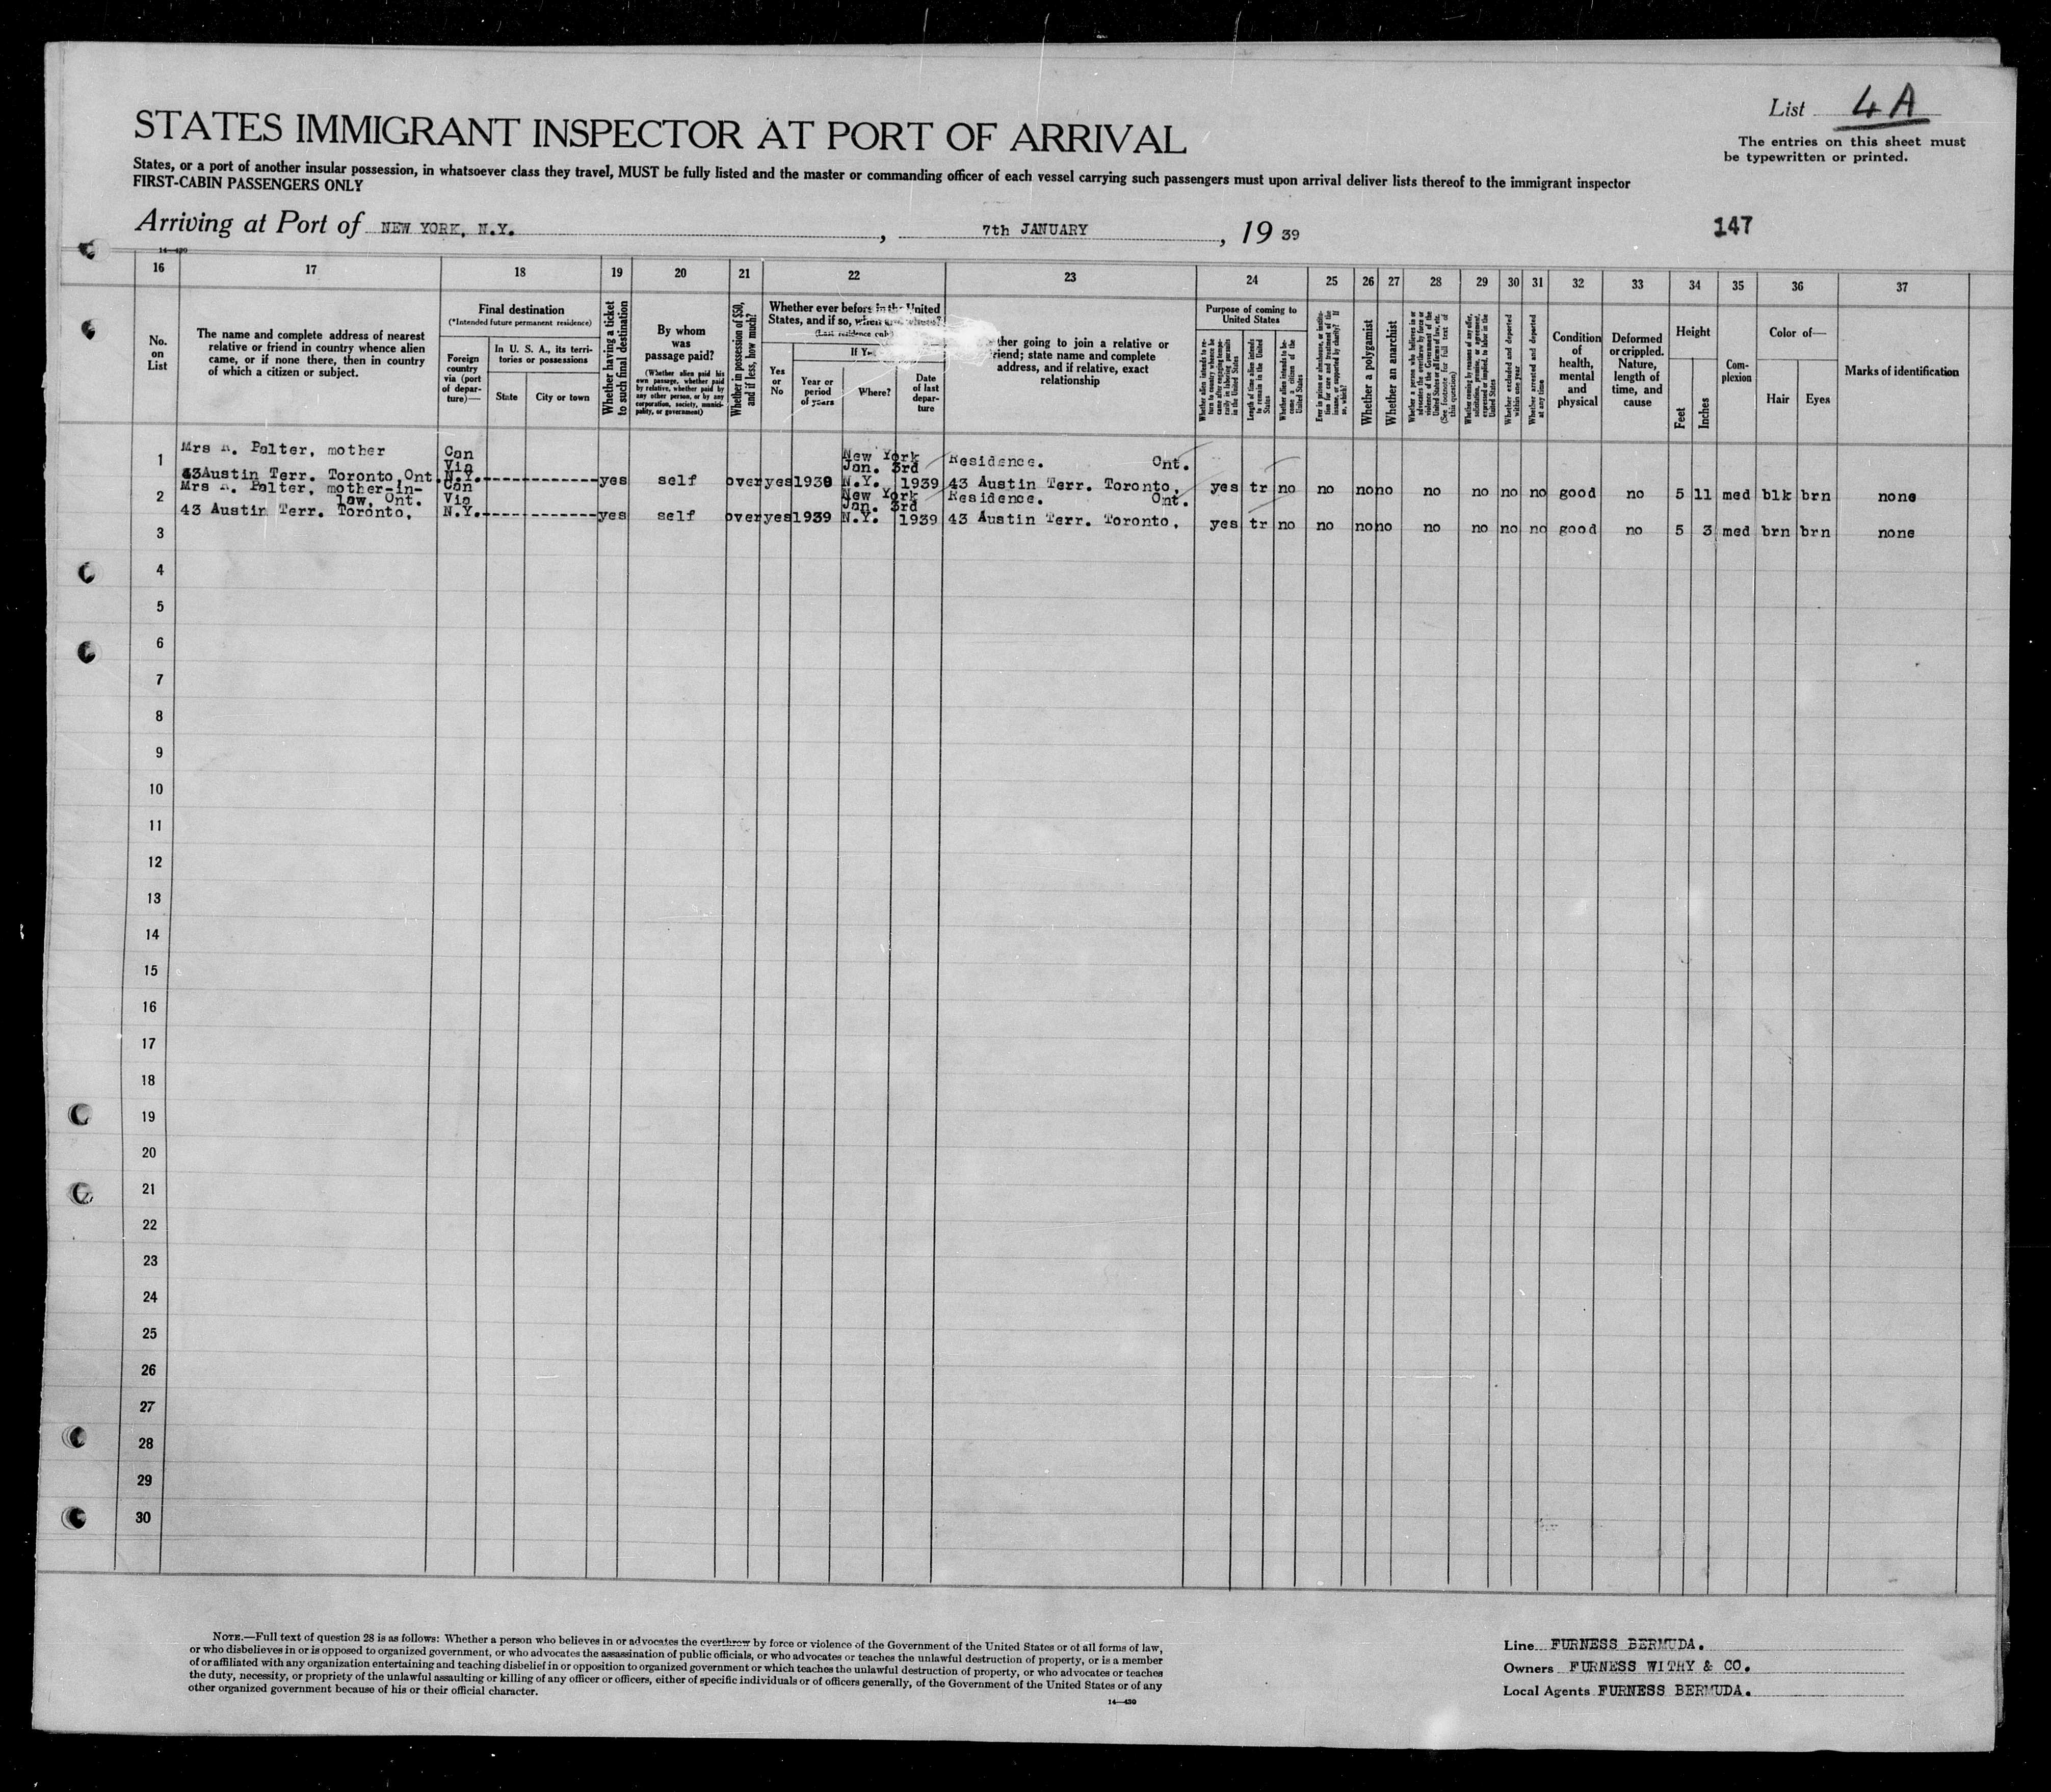 List 4A
The entries on this sheet must
be typewritten or printed.
STATES IMMIGRANT INSPECTOR AT PORT OF ARRIVAL
States, or a port of another insular possession, in whatsoever class they travel, MUST be fully listed and the master or commanding officer of each vessel carrying such passengers must upon arrival deliver lists thereof to the immigrant inspector
FIRST-CABIN PASSENGERS ONLY
Arriving at Port of NEW YORK, N.Y., 7th JANUARY, 19 39
147
16 17 18 19 20 21 22 23 24 25 26 27 28 29 30 31 32 33 34 35 36 37
No.
on
List
The name and complete address of nearest
relative or friend in country whence alien
came, or if none there, then in country
of which a citizen or subject.
Final destination
(*Intended future permanent residence)
Foreign
country
via (port
of depar-
ture)—
In U. S. A., its terri-
tories or possessions
State
City or town
Whether having a ticket
to such final destination
By whom
was
passage paid?
(Whether alien paid his
own passage, whether paid
by relative, whether paid by
any other person, or by any
corporation, society, munici-
pality, or government)
Whether in possession of $50,
and if less, how much?
Whether ever before in the United
States, and if so, when and where?
(Last residence only)
Yes
or
No
If Y
Year or
period
of years
Where?
Date
of last
depar-
ture
ther going to join a relative or
riend; state name and complete
address, and if relative, exact
relationship
Purpose of coming to
United States
Whether alien intends to re-
turn to country whence he
came after engaging tempo-
rarily in laboring pursuits
in the United States
Length of time alien intends
to remain in the United
States
Whether alien intends to be-
come a citizen of the
United States
Ever in prison or almshouse, or institu-
tion for care and treatment of the
insane, or supported by charity? If
so, which?
Whether a polygamist
Whether an anarchist
Whether a person who believes in or
advocates the overthrow by force or
violence of the Government of the
United States or all forms of law, etc.
(See footnote for full text of
this question)
Whether coming by reasons of any offer,
solicitation, promise, or agreement,
expressed or implied, to labor in the
United States
Whether excluded and deported
within one year
Whether arrested and deported
at any time
Condition
of
health,
mental
and
physical
Deformed
or crippled.
Nature,
length of
time, and
cause
Height
Feet
Inches
Com-
plexion
Color of—
Hair
Eyes
Marks of identification
1 Mrs Palter, mother Can New York Residence. Ont.
Via Jan. 3rd
43Austin Terr. Toronto,Ont. N.Y. yes self over yes 1939 N.Y. 1939 43 Austin Terr. Toronto, yes tr no no no no no no no no good no 5 11 med blk brn none
2 Mrs Palter, mother-in- Can New York Residence. Ont.
law, Ont. Via Jan. 3rd
43 Austin Terr. Toronto, N.Y. yes self over yes 1939 N.Y. 1939 43 Austin Terr. Toronto, yes tr no no no no no no no no good no 5 3 med brn brn none
3
4
5
6
7
8
9
10
11
12
13
14
15
16
17
18
19
20
21
22
23
24
25
26
27
28
29
30
NOTE.—Full text of question 28 is as follows: Whether a person who believes in or advocates the overthrow by force or violence of the Government of the United States or of all forms of law,
or who disbelieves in or is opposed to organized government, or who advocates the assassination of public officials, or who advocates or teaches the unlawful destruction of property, or is a member
of or affiliated with any organization entertaining and teaching disbelief in or opposition to organized government or which teaches the unlawful destruction of property, or who advocates or teaches
the duty, necessity, or propriety of the unlawful assaulting or killing of any officer or officers, either of specific individuals or of officers generally, of the Government of the United States or of any
other organized government because of his or their official character.
14—430
Line FURNESS BERMUDA.
Owners FURNESS WITHY & CO.
Local Agents FURNESS BERMUDA.